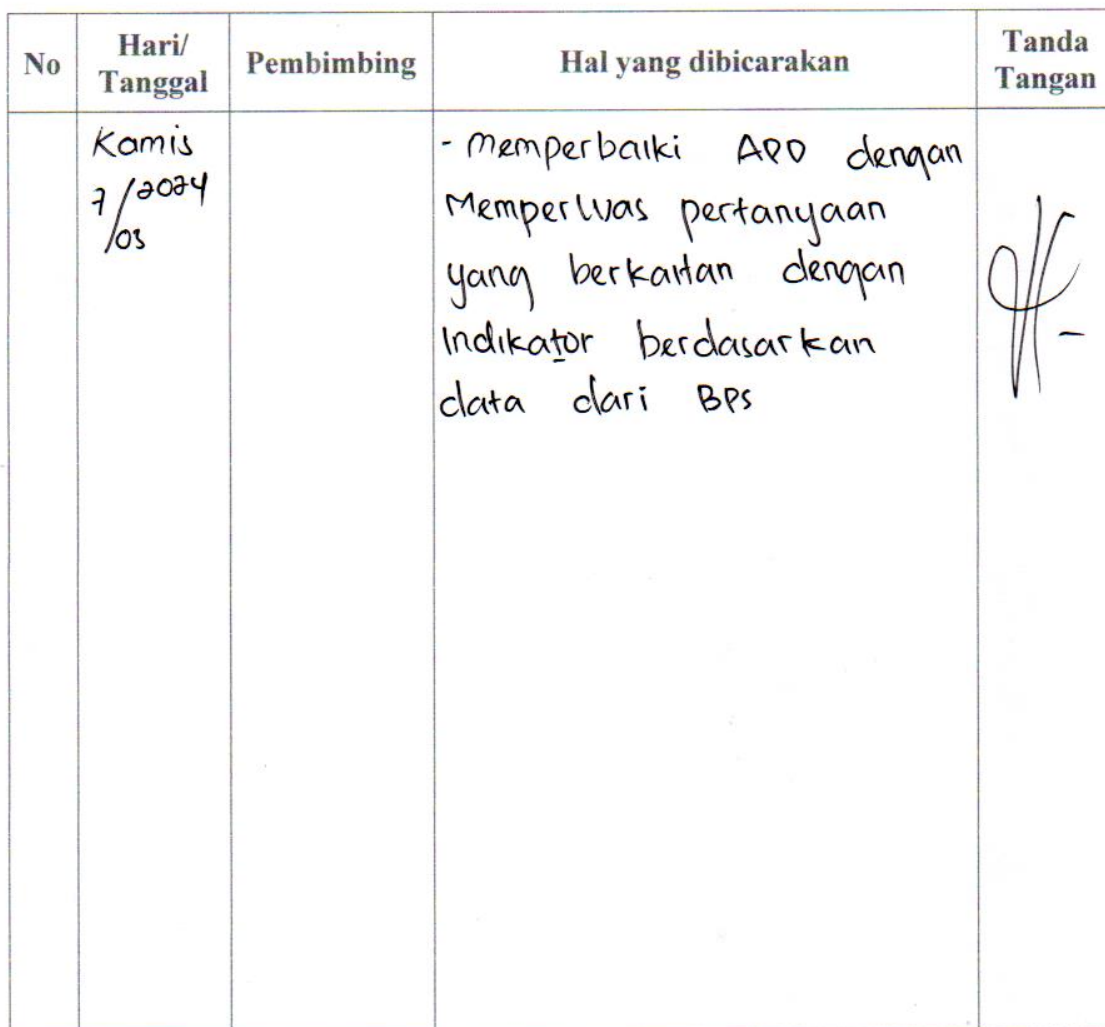 No Hari/ Tanggal Pembimbing Hal yang dibicarakan Tanda Tangan
Kamis
7/2024
/03
- Memperbaiki APD dengan
Memperluas pertanyaan
yang berkaitan dengan
Indikator berdasarkan
data dari BPS